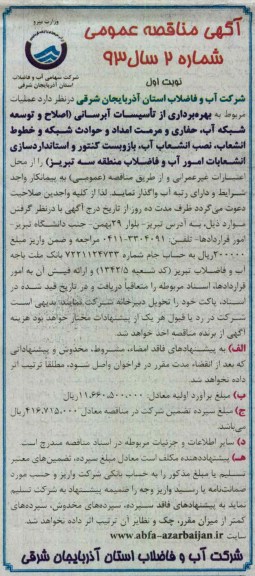 آگهی مناقصه عمومی
شماره ۲ سال ۹۳
وزارت نیرو
شرکت سهامی آب و فاضلاب
استان آذربایجان شرقی
نوبت اول
شرکت آب و فاضلاب استان آذربایجان شرقی درنظر دارد عملیات
مربوط به بهره‌برداری از تأسیسات آبرسانی (اصلاح و توسعه
شبکه آب، حفاری و مرمت امداد و حوادث شبکه و خطوط
انشعاب، نصب انشعاب آب، بازوبست کنتور و استانداردسازی
انشعابات امور آب و فاضلاب منطقه سه تبریز) را از محل
اعتبارات غیرعمرانی و از طریق مناقصه (عمومی) به پیمانکار واجد
شرایط و دارای رتبه آب واگذار نمایند. لذا از کلیه واجدین صلاحیت
دعوت می‌گردد ظرف مدت ده روز از تاریخ درج آگهی با درنظر گرفتن
موارد ذیل، به آدرس تبریز- بلوار ۲۹بهمن- جنب دانشگاه تبریز-
امور قراردادها- تلفن: ۳۳۰۴۰۹۱-۰۴۱۱ مراجعه و ضمن واریز مبلغ
۲۰۰۰۰۰ریال به حساب جام شماره ۷۲۲۱۱۲۴۷۳۳ بانک ملت باجه
آب و فاضلاب تبریز (کد شعبه ۱۳۴۲/۵) و ارائه فیش آن به امور
قراردادها، اسناد مربوطه را متعاقباً دریافت و در تاریخ قید شده در
اسناد، پاکت خود را تحویل دبیرخانه شرکت نمایند. بدیهی است
شرکت در رد یا قبول هر یک از پیشنهادات مختار خواهد بود هزینه
آگهی از برنده مناقصه اخذ خواهد شد.
الف) به پیشنهادهای فاقد امضاء، مشروط، مخدوش و پیشنهاداتی
که بعد از انقضاء مدت مقرر در فراخوان واصل شود، مطلقا ترتیب اثر
داده نخواهد شد.
ب) مبلغ برآورد اولیه معادل: ۱۱.۶۶۰.۵۰۰.۰۰۰ریال.
ج) مبلغ سپرده تضمین شرکت در مناقصه معادل ۴۱۶.۷۱۵.۰۰۰ریال
می‌باشد.
د) سایر اطلاعات و جزئیات مربوطه در اسناد مناقصه مندرج است.
هـ) پیشنهاددهنده مکلف است معادل مبلغ سپرده، تضمین‌های معتبر
تسلیم یا مبلغ مذکور را به حساب بانکی شرکت واریز و حسب مورد
ضمانت‌نامه یا رسید واریز وجه را ضمیمه پیشنهاد به شرکت تسلیم
نماید به پیشنهادهای فاقد سپرده، سپرده‌های مخدوش، سپرده‌های
کمتر از میزان مقرر، چک و نظایر آن ترتیب اثر داده نخواهد شد.
سایت www.abfa-azarbaijan.ir
شرکت آب و فاضلاب استان آذربایجان شرقی